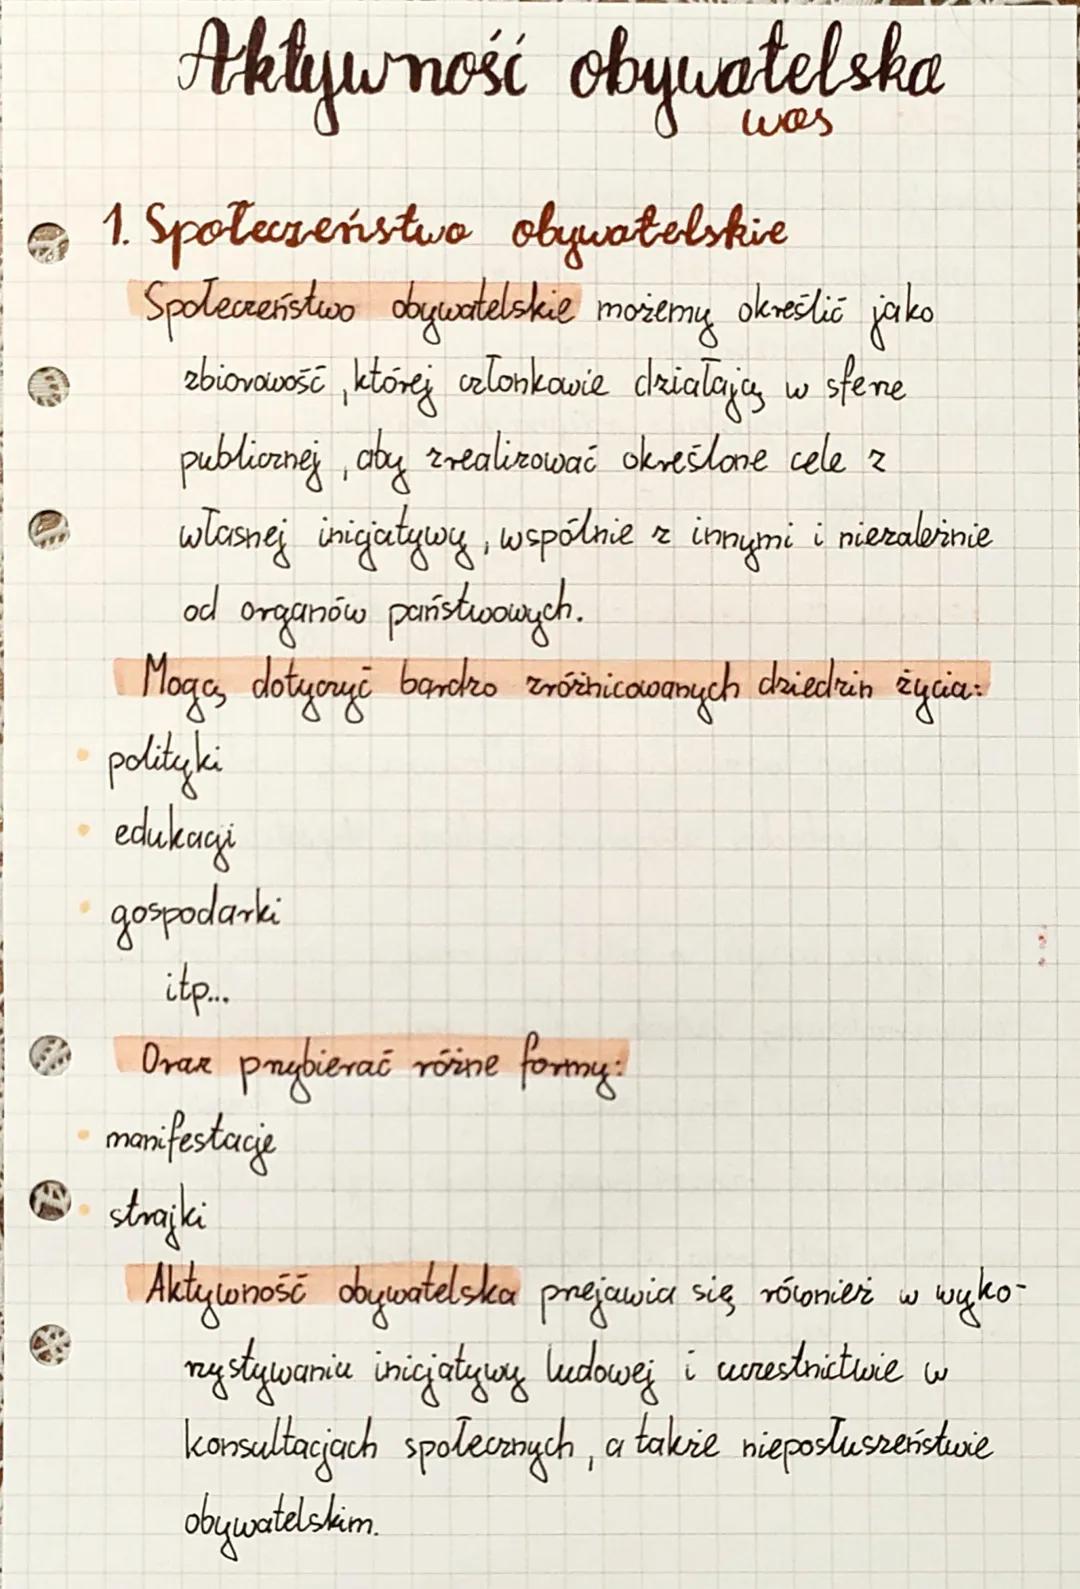 Aktywność obywatelska
wos
1. Społeczeństwo obywatelskie
Społeczeństwo obywatelskie możemy określić jako
zbiorowość, której członkowie działają w sferze
publicznej, aby zrealizować określone cele z
własnej inicjatywy, wspólnie z innymi i niezależnie
od organów państwowych.
Mogą dotyczyć bardzo zróżnicowanych dziedzin życia:
• polityki
• edukacji
• gospodarki
itp...
Oraz przybierać różne formy:
• manifestacje
• strajki
Aktywność obywatelska przejawia się również w wyko-
rzystywaniu inicjatywy ludowej i uczestnictwie w
konsultacjach społecznych, a także nieposłuszeństwie
obywatelskim.